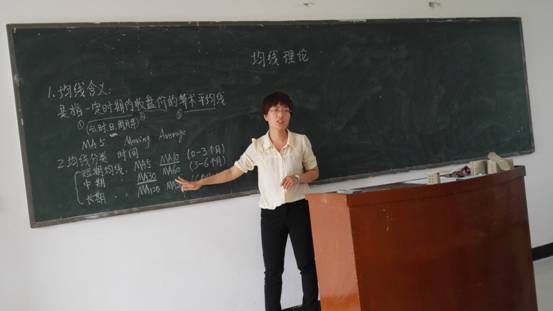 均线理论
1.均线含义:
是指一定时期内收盘价的算术平均线
MA5 Moving Average
2.均线分类 时间
短期均线: MA5 MA10 (0-3个月)
中期 MA30 MA60 (3-6个月)
长期 MA120